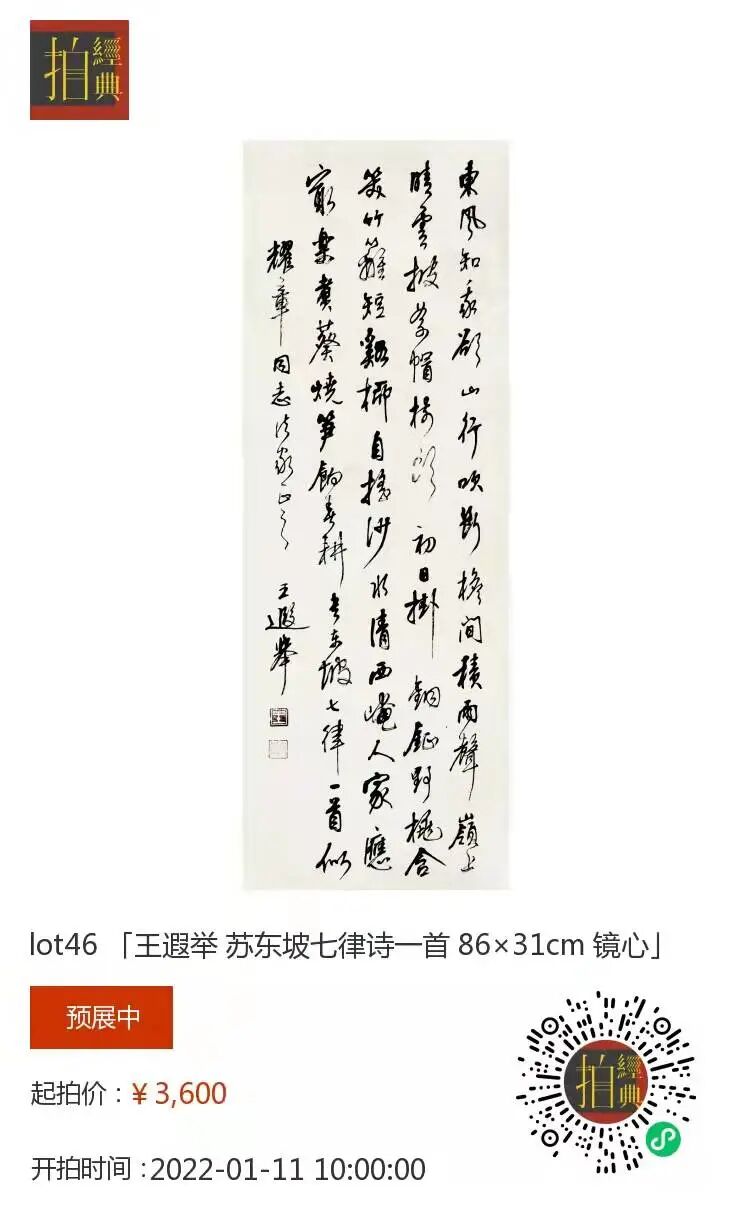 拍 經典
東風知我欲山行吹斷檐間積雨聲嶺上
晴雲披絮帽樹頭初日掛銅鉦野桃含
笑竹籬短谿柳自搖沙水清西崦人家應
最樂煮葵燒笋餉春耕 書東坡七律一首似
耀章同志法家正之 王遐舉
lot46 「王遐举 苏东坡七律诗一首 86×31cm 镜心」
预展中
起拍价：¥ 3,600
开拍时间：2022-01-11 10:00:00
拍 經典